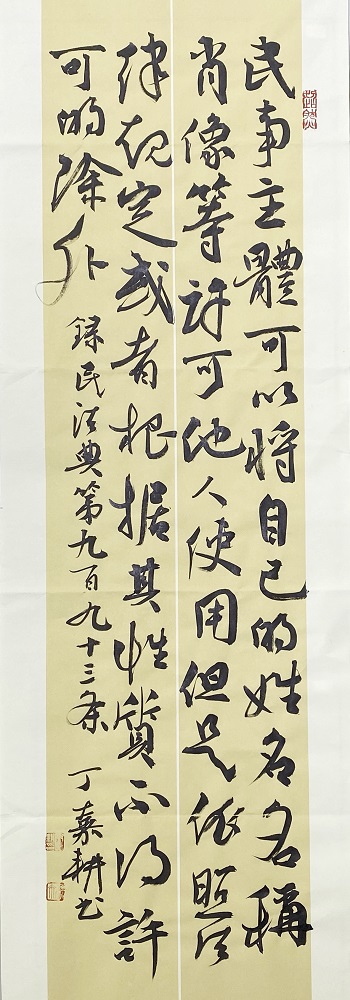 民事主體可以将自己的姓名名稱
肖像等許可他人使用但是依照法
律規定或者根据其性質不得許
可的除外
録民法典第九百九十三条
丁嘉耕书